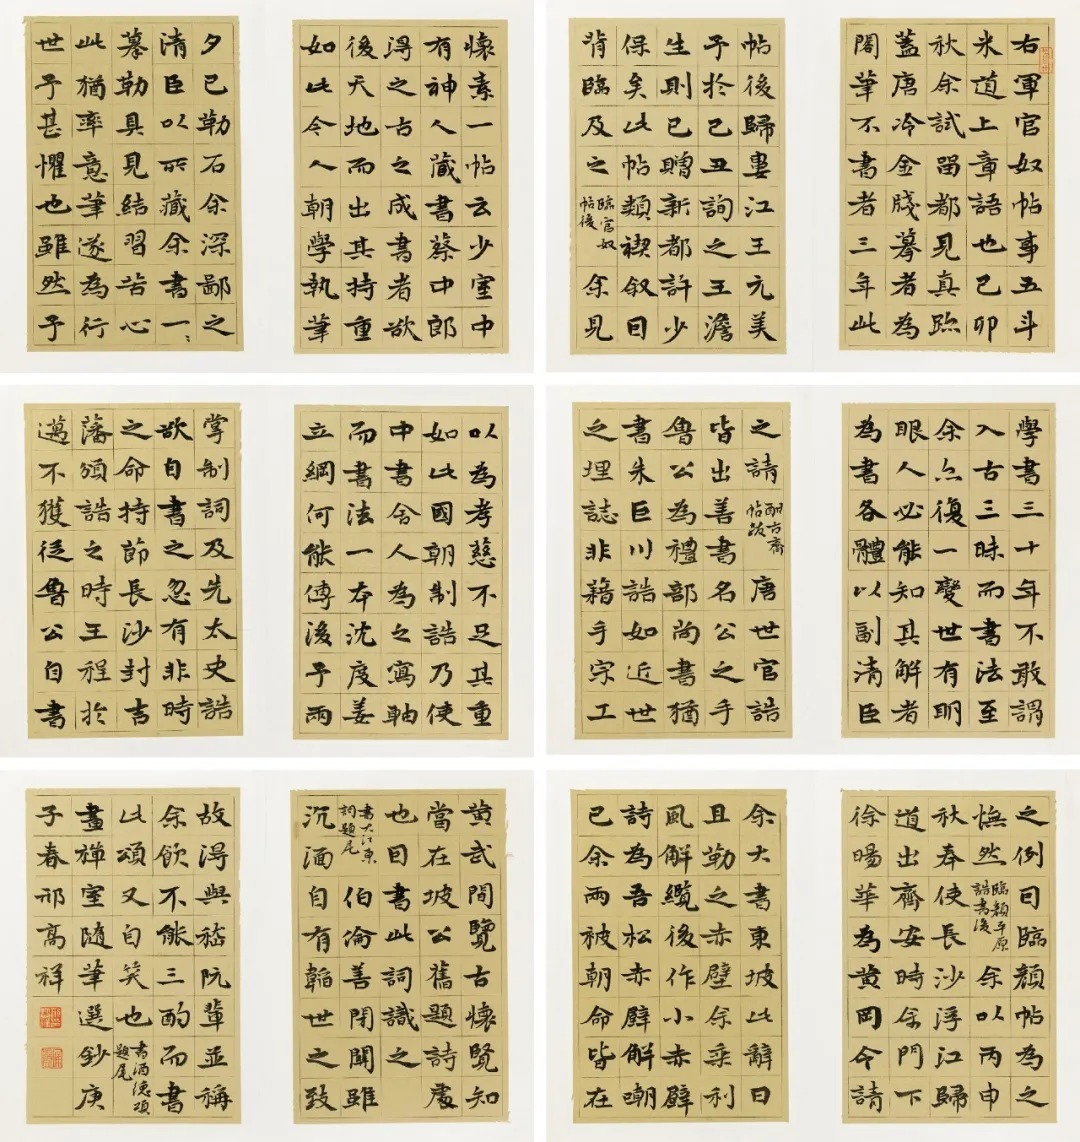 右軍官奴帖事五斗
米道上章語也己卯
秋余試留都見真跡
蓋唐冷金牋摹者為
閣筆不書者三年此
帖後歸婁江王元美
予於己丑詢之王澹
生則已贈新都許少
保矣此帖類禊叙曰
背臨及之臨官奴帖後余見
懷素一帖云少室中
有神人藏書蔡中郎
淂之古之成書者欲
後天地而出其持重
如此今人朝學執筆
夕已勒石余深鄙之
清臣以所藏余書一二
摹勒具見結習苦心
此猶率意筆遂為行
世予甚懼也雖然予
學書三十年不敢謂
入古三昧而書法至
余亦復一變世有明
眼人必能知其解者
為書各體以副清臣
之請酣古齋帖跋唐世官誥
皆出善書名公之手
魯公為禮部尚書猶
書朱巨川誥如近世
之埋誌非藉手宗工
以為孝慈不足其重
如此國朝制誥乃使
中書舍人為之寫軸
而書法一本沈度姜
立綱何能傳後予兩
掌制詞及先太史誥
欲自書之忽有非時
之命持節長沙封吉
藩頒誥之時王程於
邁不獲從魯公自書
之例曰臨顏帖為之
憮然臨顏平原誥書後余以丙申
秋奉使長沙浮江歸
道出齊安時余門下
徐暘華為黃岡令請
余大書東坡此辭曰
且勒之赤壁余乘利
風解纜後作小赤壁
詩為吾松赤壁解嘲
已余兩被朝命皆在
黃武間覽古懷賢知
當在坡公舊題詩處
也曰書此詞識之
書大江東詞題尾伯倫善閉關雖
沉湎自有韜世之致
故淂與嵇阮輩並稱
余飲不能三酌而書
此頌又自笑也書酒德頌題尾
畫禪室隨筆選鈔庚
子春邢高祥